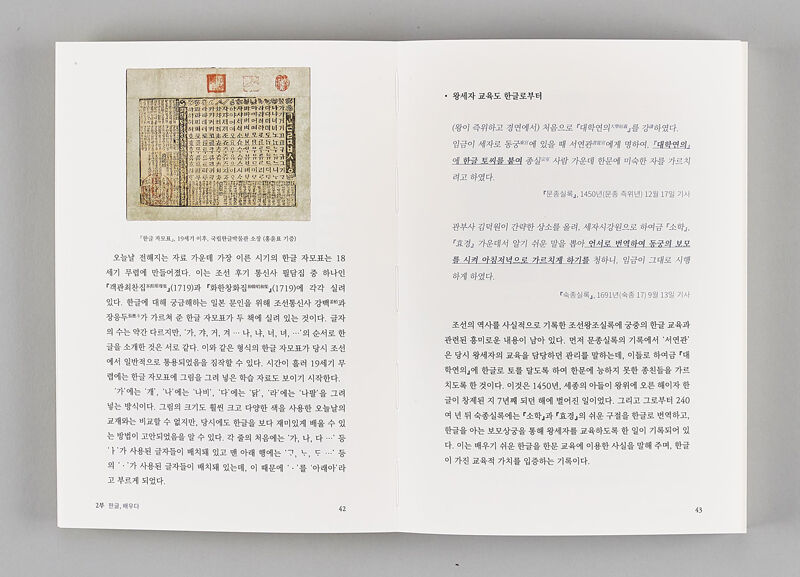 『한글 자모표』, 19세기 이후, 국립한글박물관 소장 (홍윤표 기증)
오늘날 전해지는 자료 가운데 가장 이른 시기의 한글 자모표는 18
세기 무렵에 만들어졌다. 이는 조선 후기 통신사 필담집 중 하나인
『객관최찬집』(1719)과 『화한창화집』(1719)에 각각 실려
있다. 한글에 대해 궁금해하는 일본 문인을 위해 조선통신사 강백과
장응두가 가르쳐 준 한글 자모표가 두 책에 실려 있는 것이다. 글자
의 수는 약간 다르지만, '가, 갸, 거, 겨 … 나, 냐, 너, 녀, …'의 순서로 한
글을 소개한 것은 서로 같다. 이와 같은 형식의 한글 자모표가 당시 조선
에서 일반적으로 통용되었음을 짐작할 수 있다. 시간이 흘러 19세기 무
렵에는 한글 자모표에 그림을 그려 넣은 학습 자료도 보이기 시작한다.
'가'에는 '개', '나'에는 '나비', '다'에는 '닭', '라'에는 '나팔'을 그려
넣는 방식이다. 그림의 크기도 훨씬 크고 다양한 색을 사용한 오늘날의
교재와는 비교할 수 없지만, 당시에도 한글을 보다 재미있게 배울 수 있
는 방법이 고안되었음을 알 수 있다. 각 줄의 처음에는 '가, 나, 다 …' 등
'ㅏ'가 사용된 글자들이 배치돼 있고 맨 아래 행에는 'ᄀᆞ, ᄂᆞ, ᄃᆞ …' 등
의 'ㆍ'가 사용된 글자들이 배치돼 있는데, 이 때문에 'ㆍ'를 '아래아'라
고 부르게 되었다.
2부 한글, 배우다
42
• 왕세자 교육도 한글로부터
(왕이 즉위하고 경연에서) 처음으로 『대학연의』를 강하였다.
임금이 세자로 동궁에 있을 때 서연관에게 명하여, 『대학연의』
에 한글 토씨를 붙여 종실 사람 가운데 한문에 미숙한 자를 가르치
려고 하였다.
『문종실록』, 1450년(문종 즉위년) 12월 17일 기사
관부사 김덕원이 간략한 상소를 올려, 세자시강원으로 하여금 『소학』,
『효경』 가운데서 알기 쉬운 말을 뽑아 언서로 번역하여 동궁의 보모
를 시켜 아침저녁으로 가르치게 하기를 청하니, 임금이 그대로 시행
하게 하였다.
『숙종실록』, 1691년(숙종 17) 9월 13일 기사
조선의 역사를 사실적으로 기록한 조선왕조실록에 궁중의 한글 교육과
관련된 흥미로운 내용이 남아 있다. 먼저 문종실록의 기록에서 '서연관'
은 당시 왕세자의 교육을 담당하던 관리를 말하는데, 이들로 하여금 『대
학연의』에 한글로 토를 달도록 하여 한문에 능하지 못한 종친들을 가르
치도록 한 것이다. 이것은 1450년, 세종의 아들이 왕위에 오른 해이자 한
글이 창제된 지 7년째 되던 해에 벌어진 일이었다. 그리고 그로부터 240
여 년 뒤 숙종실록에는 『소학』과 『효경』의 쉬운 구절을 한글로 번역하고,
한글을 아는 보모상궁을 통해 왕세자를 교육하도록 한 일이 기록되어 있
다. 이는 배우기 쉬운 한글을 한문 교육에 이용한 사실을 말해 주며, 한글
이 가진 교육적 가치를 입증하는 기록이다.
43